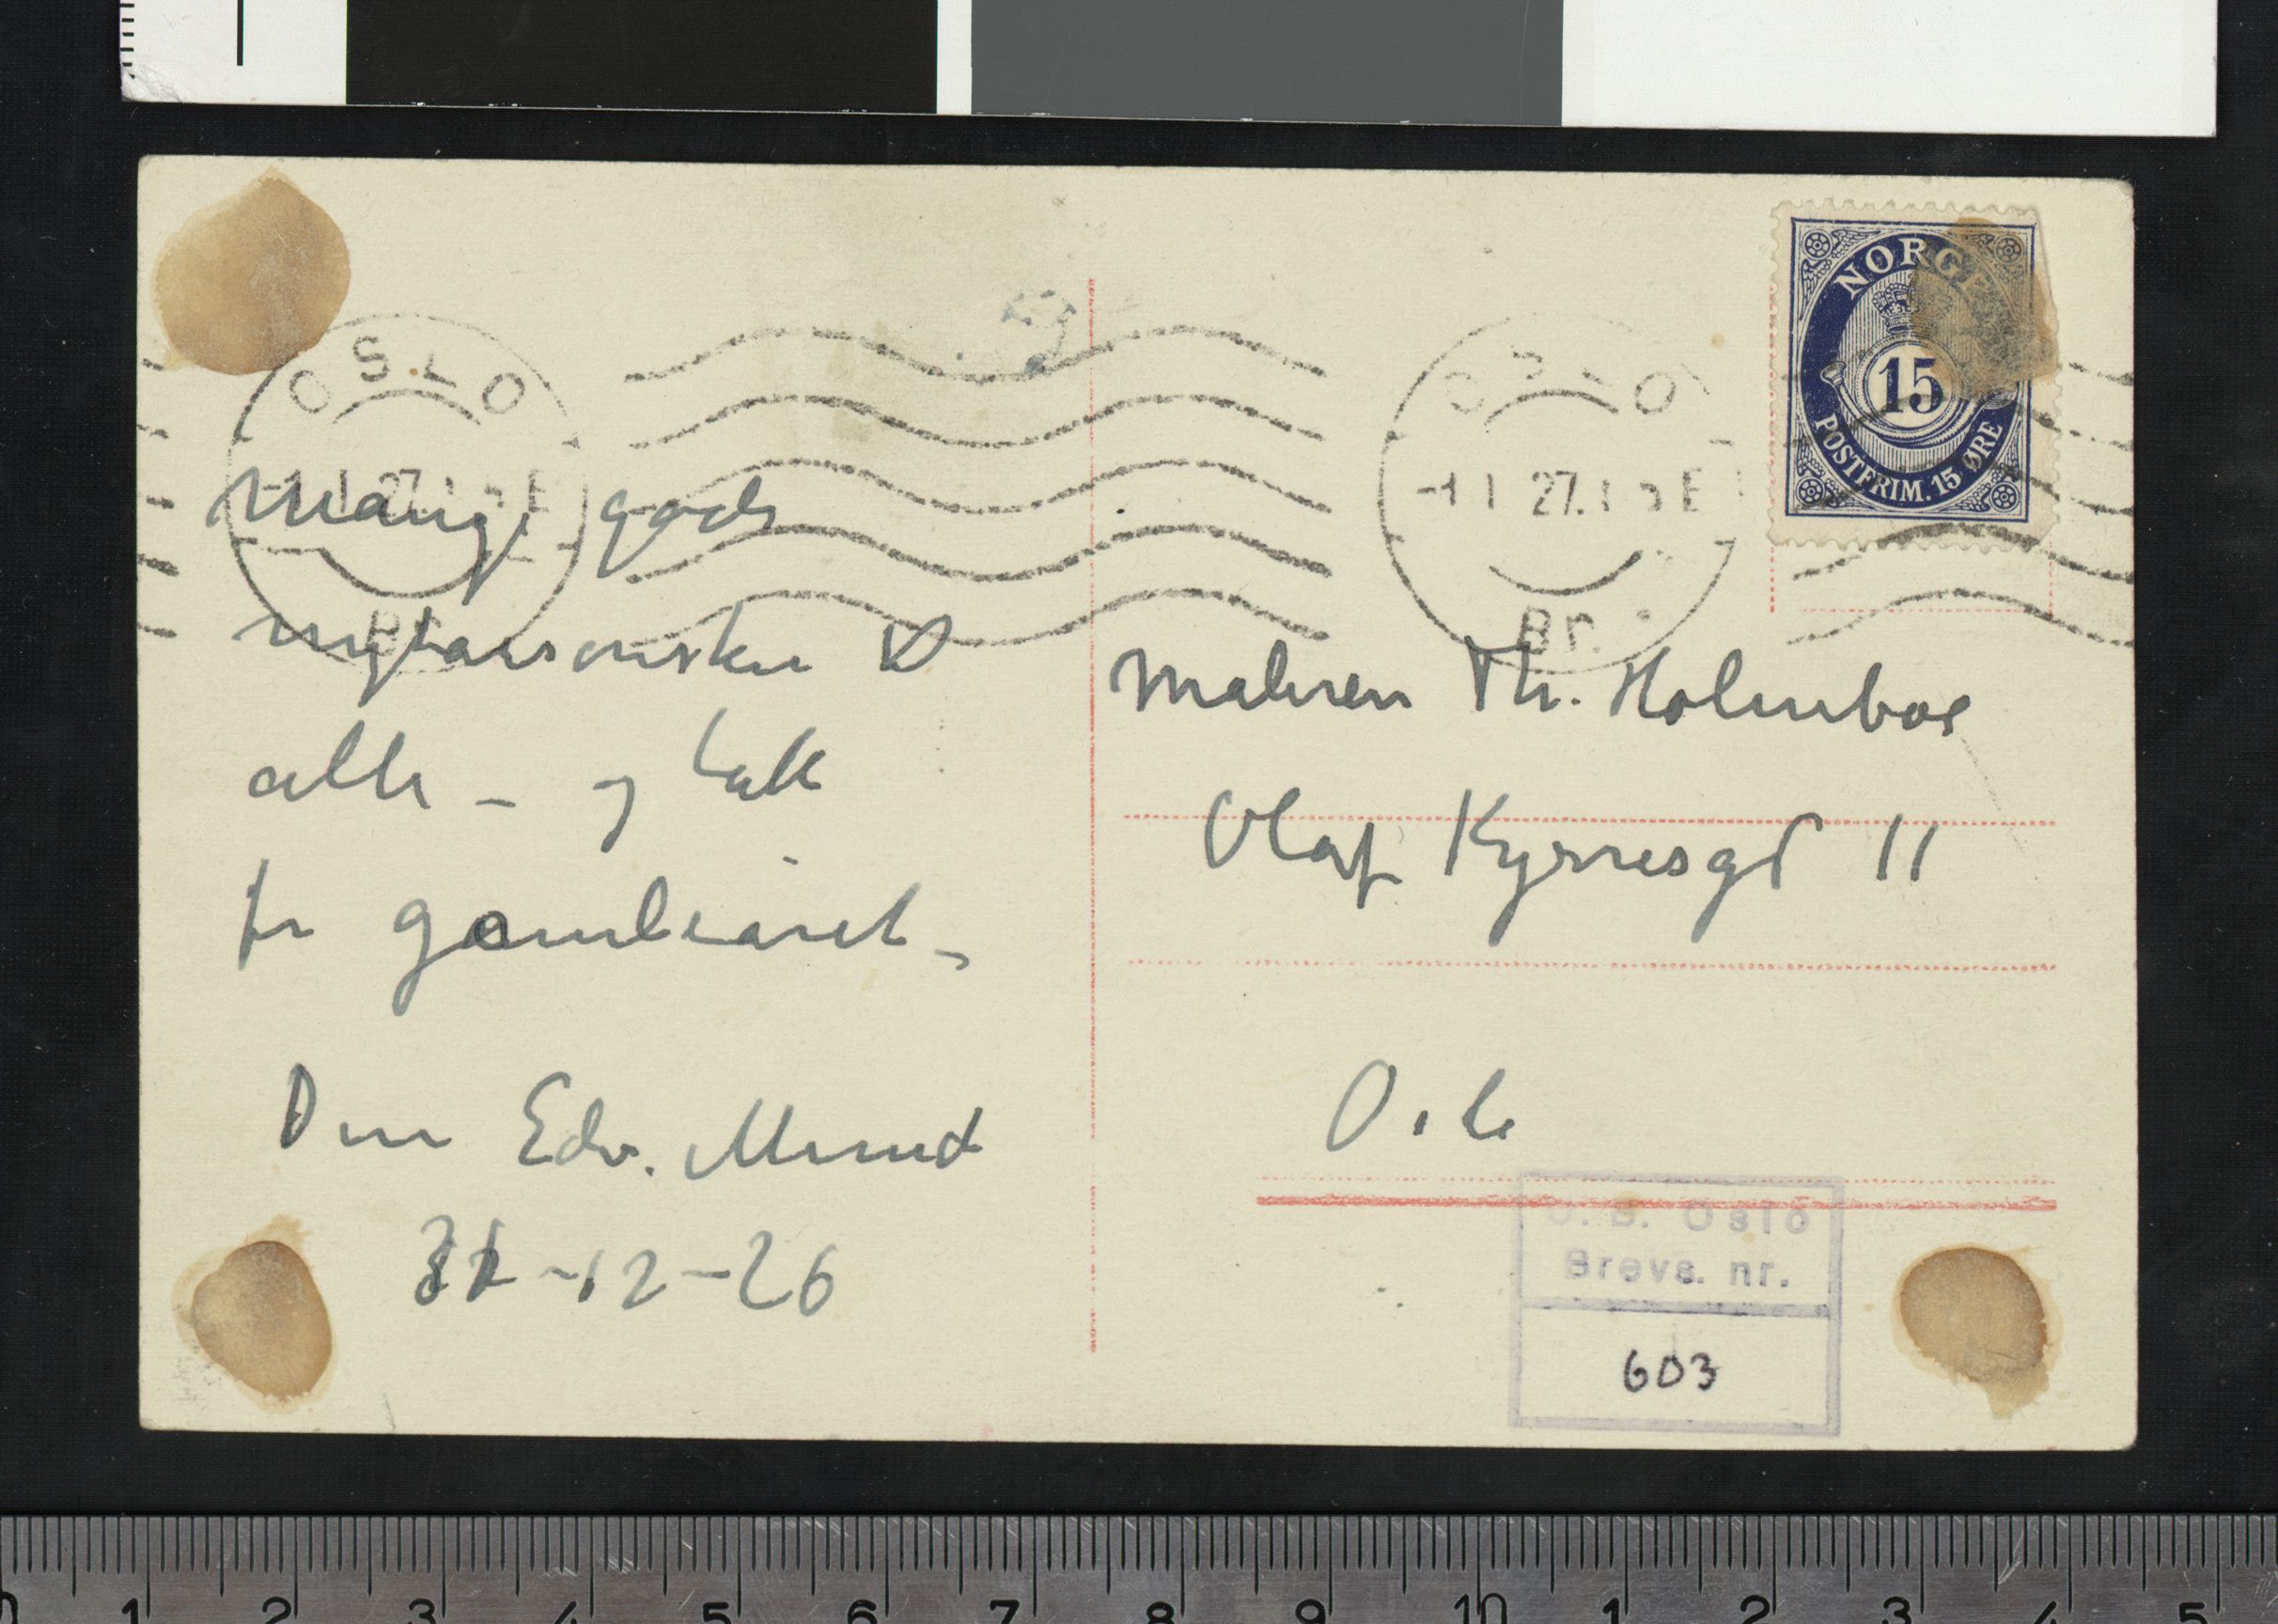 OSLO
-1 1 27. 1 5 E
Br.
Mange gode
nytaarsønsker til
alle – og takk
for gamleåret –
Din Edv. Munch
31-12-26
OSLO
-1 1 27. 1 5 E
Br.
NORGE
15
POSTFRIM. 15 ØRE
Maleren Th. Holmboe
Olaf Kyrresgt 11
Oslo
U. B. Oslo
Brevs. nr.
603
0 1 2 3 4 5 6 7 8 9 10 1 2 3 4 5